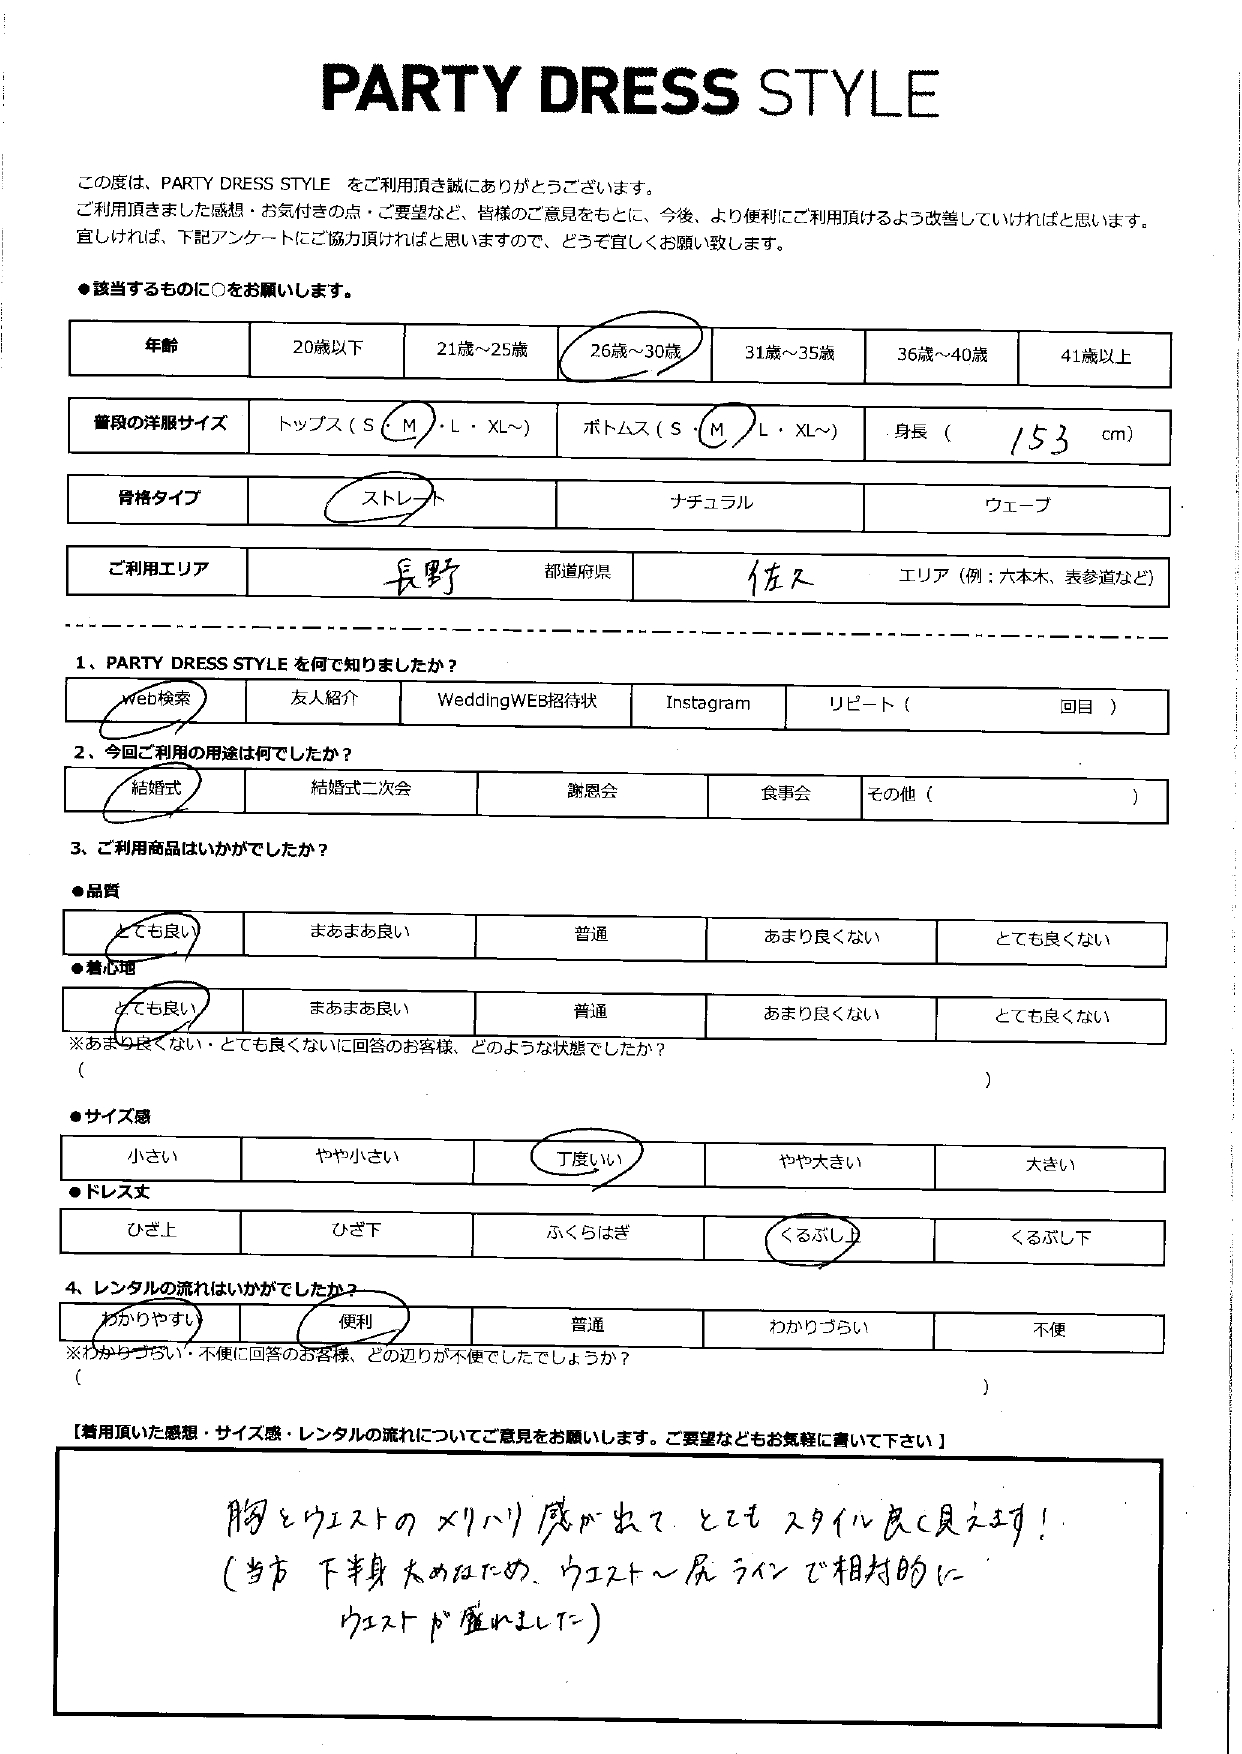 PARTY DRESS STYLE
この度は、PARTY DRESS STYLE をご利用頂き誠にありがとうございます。
ご利用頂きました感想・お気付きの点・ご要望など、皆様のご意見をもとに、今後、より便利にご利用頂けるよう改善していければと思います。
宜しければ、下記アンケートにご協力頂ければと思いますので、どうぞ宜しくお願い致します。
●該当するものに○をお願いします。
年齢 20歳以下 21歳～25歳 26歳～30歳 31歳～35歳 36歳～40歳 41歳以上
普段の洋服サイズ トップス（ S ・ M ・ L ・ XL～） ボトムス（ S ・ M ・ L ・ XL～） 身長 （ 153 cm）
骨格タイプ ストレート ナチュラル ウェーブ
ご利用エリア 長野 都道府県 佐久 エリア（例：六本木、表参道など）
1、PARTY DRESS STYLE を何で知りましたか？
Web検索 友人紹介 WeddingWEB招待状 Instagram リピート（ 回目 ）
2、今回ご利用の用途は何でしたか？
結婚式 結婚式二次会 謝恩会 食事会 その他（ ）
3、ご利用商品はいかがでしたか？
●品質
とても良い まあまあ良い 普通 あまり良くない とても良くない
●着心地
とても良い まあまあ良い 普通 あまり良くない とても良くない
※あまり良くない・とても良くないに回答のお客様、どのような状態でしたか？
（ ）
●サイズ感
小さい やや小さい 丁度いい やや大きい 大きい
●ドレス丈
ひざ上 ひざ下 ふくらはぎ くるぶし上 くるぶし下
4、レンタルの流れはいかがでしたか？
わかりやすい 便利 普通 わかりづらい 不便
※わかりづらい・不便に回答のお客様、どの辺りが不便でしたでしょうか？
（ ）
【着用頂いた感想・サイズ感・レンタルの流れについてご意見をお願いします。ご要望などもお気軽に書いて下さい 】
胸とウエストの メリハリ感が出て とても スタイル良く見えます！
（当方 下半身太めなため、ウエスト～尻ラインで相対的に
ウエストが盛れました）